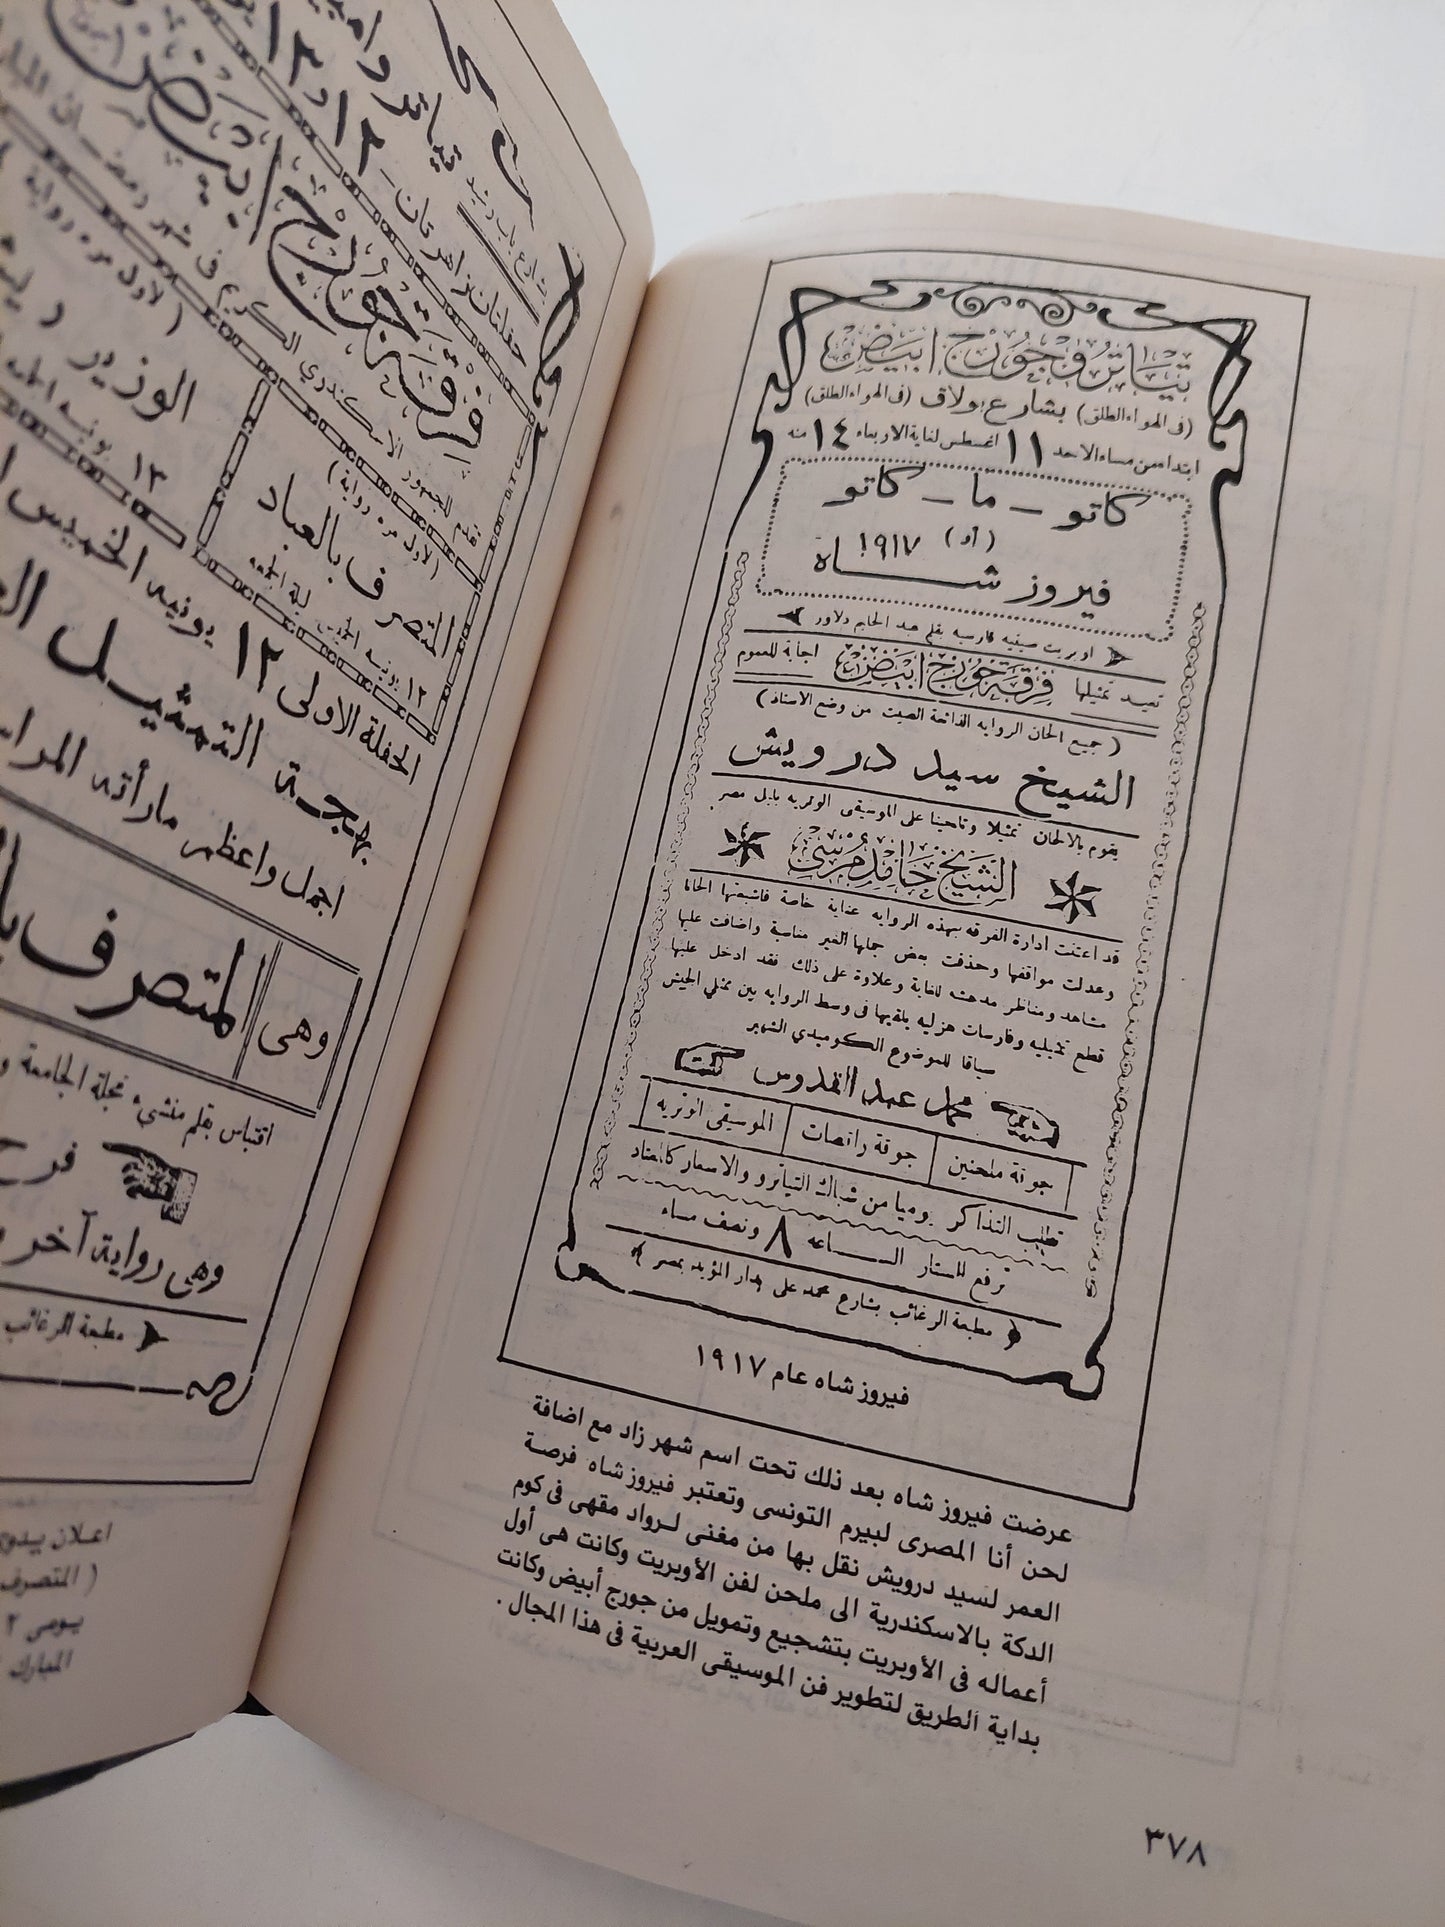 تياترو جورج ابيض
(فى الهواء الطلق) بشارع بولاق (فى الهواء الطلق)
ابتداء من مساء الاحد ١١ اغسطس لغاية الاربعاء ١٤ منه
كاتو - ما - كاتو
(أو) ١٩١٧
فيروز شاه
اوبريت صينيه فارسيه بقلم عبد الحليم دلاور
تعيد تمثيلها فرقة جورج ابيض اجابة للعموم
( جميع الحان الروايه الذائعة الصيت من وضع الاستاذ )
الشيخ سيد درويش
يقوم بالالحان تمثيلا وتلحينا على الموسيقى الوتريه بلبل مصر
الشيخ حامد مرسى
قد اعتنت ادارة الفرقه بهذه الروايه عناية خاصة فاشبعتها الحانا
وعدلت مواقفها وحذفت بعض جملها الغير مناسبة واضافت عليها
مشاهد ومناظر مدهشه للغاية وعلاوة على ذلك فقد ادخل عليها
قطع تمثيليه وفارسات هزليه يلقيها فى وسط الروايه بين ممثلي الجيش
سياقا للموضوع الكوميدي الشهير
محمد عبد القدوس
جوقة ملحنين
جوقة راقصات
الموسيقى الوتريه
تطلب التذاكر يوميا من شباك التياترو والاسعار كالمعتاد
ترفع الستار الساعه ٨ ونصف مساء
مطبعة الرغائب بشارع محمد على بدار المؤيد بمصر
فيروز شاه عام ١٩١٧
عرضت فيروز شاه بعد ذلك تحت اسم شهر زاد مع اضافة
لحن أنا المصرى لبيرم التونسى وتعتبر فيروز شاه فرصة
العمر لسيد درويش نقل بها من مغنى لرواد مقهى فى كوم
الدكة بالاسكندرية الى ملحن لفن الأوبريت وكانت هى أول
أعماله فى الأوبريت بتشجيع وتمويل من جورج أبيض وكانت
بداية الطريق لتطوير فن الموسيقى العربية فى هذا المجال .
٣٧٨
تياترو
شارع باب رشيد
حفلتان زاهرتان - ١٢ و ١٣
فرقة جورج ابيض
تقدم للجمهور الاسكندري الكريم فى شهر رمضان
(لاول مره رواية)
المتصرف بالعباد
١٢ يونيه الخميس ليلة الجمعه
(لاول مره رواية
الوزير
١٣ يونيه الجمعه
الحفلة الاولى ١٢ يونيه الخميس
بهجة التمثيل
اجمل واعظم مارأته
وهى المتصرف
اقتباس بقلم منشىء مجلة الجامعة
فرح
وهى رواية آخر
مطبعة الرغائب
اعلان
( المتصرف
يومى
المبارك